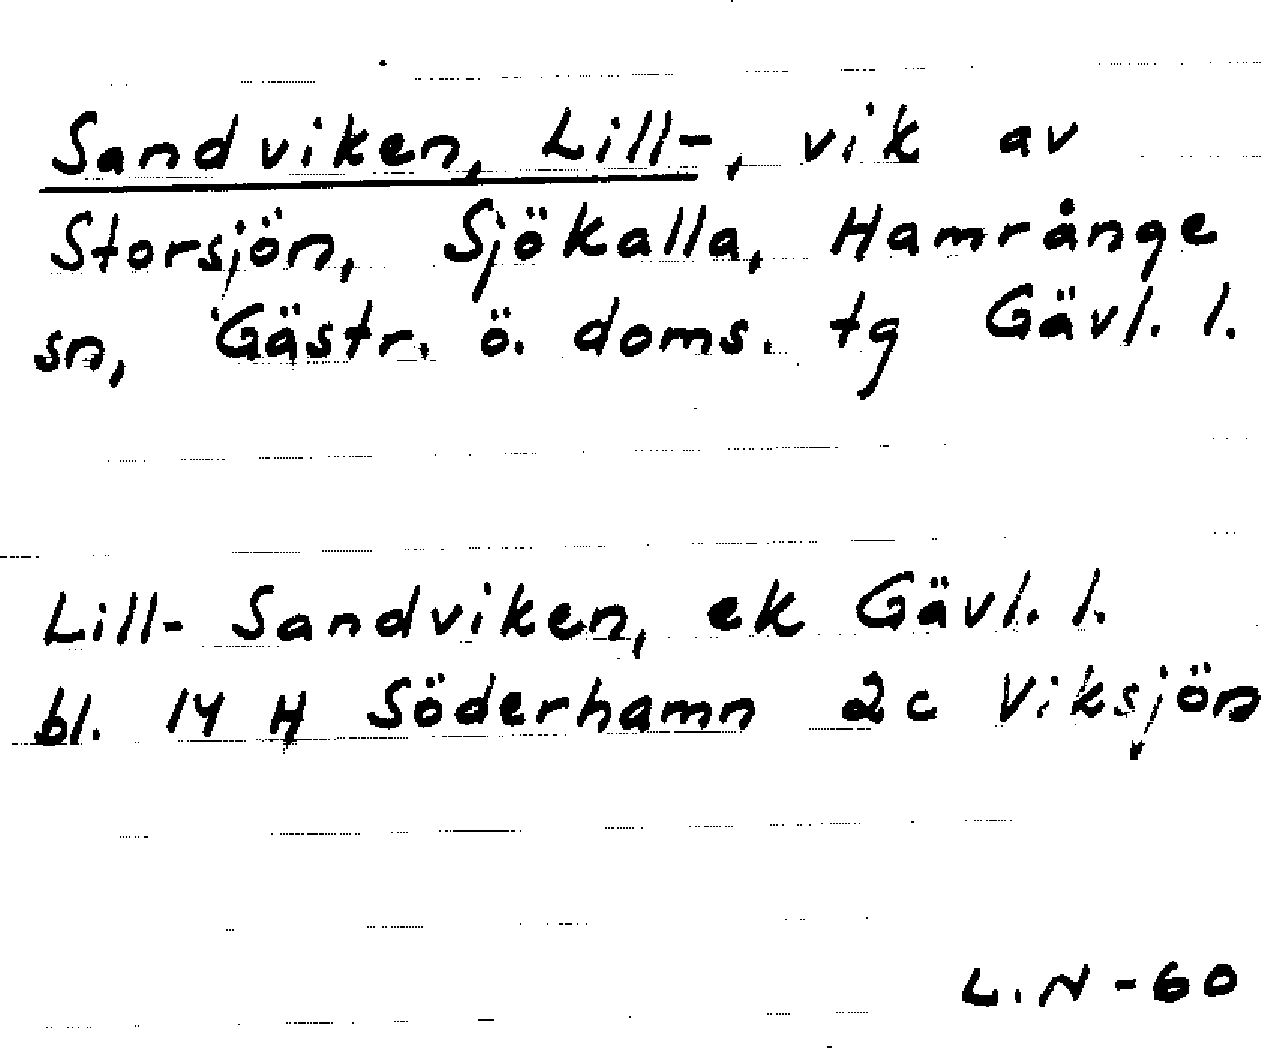 Sandviken, Lill-, vik av
Storsjön, Sjökalla, Hamrånge
sn, Gästr. ö. doms. tg Gävl. l.
Lill- Sandviken, ek Gävl. l.
bl. 14 H Söderhamn 2c Viksjön
L.N-60